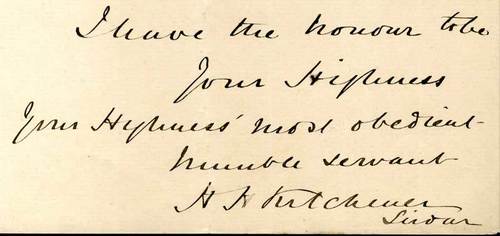 I have the honour to be
Your Highness
Your Highness' most obedient
humble servant
H H Kitchener
Sirdar